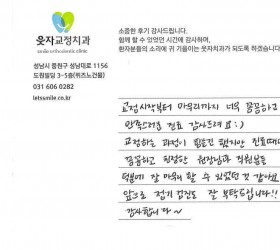 웃자교정치과
smile orthodontic clinic
성남시 중원구 성남대로 1156
도림빌딩 3~5층(위즈노건물)
031 606 0282
letssmile.co.kr
소중한 후기 감사드립니다.
함께 할 수 있었던 시간에 감사하며,
환자분들의 소리에 귀 기울이는 웃자치과가 되도록 하겠습니다.
교정시작부터 마무리까지 너무 꼼꼼하고
만족스러운 진료 감사드려요 :)
교정하는 과정이 힘든건 팼지만 진료때마다
꼼꼼하고 친절한 원장님과 직원분들
덕분에 잘 마무리 할 수 있었던 것 같아요
앞으로 정기 검진도 잘 부탁드립니다!!
감사합니다~